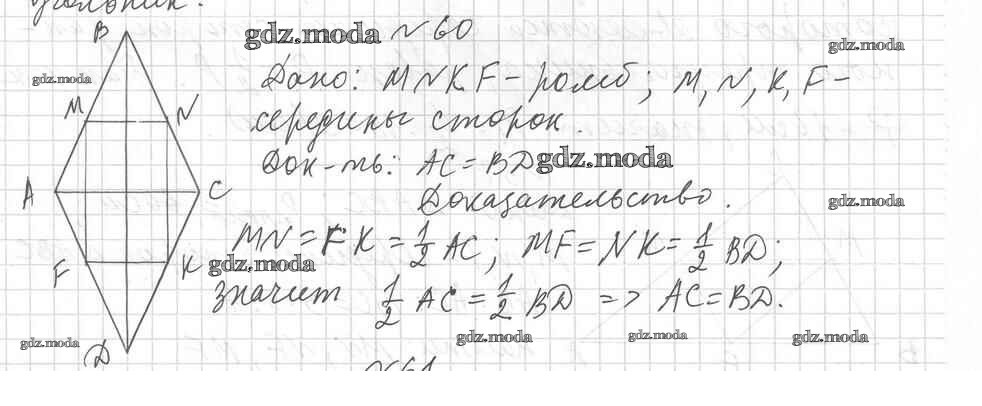 угольник.
B gdz.moda №60 gdz.moda
gdz.moda Дано: MNKF - ромб; M, N, K, F -
M N середины сторон.
Док-ть: AC = BD gdz.moda
A C Доказательство. gdz.moda
MN = FK = 1/2 AC; MF = NK = 1/2 BD;
F K gdz.moda
значит 1/2 AC = 1/2 BD => AC = BD.
gdz.moda gdz.moda gdz.moda gdz.moda
D №61